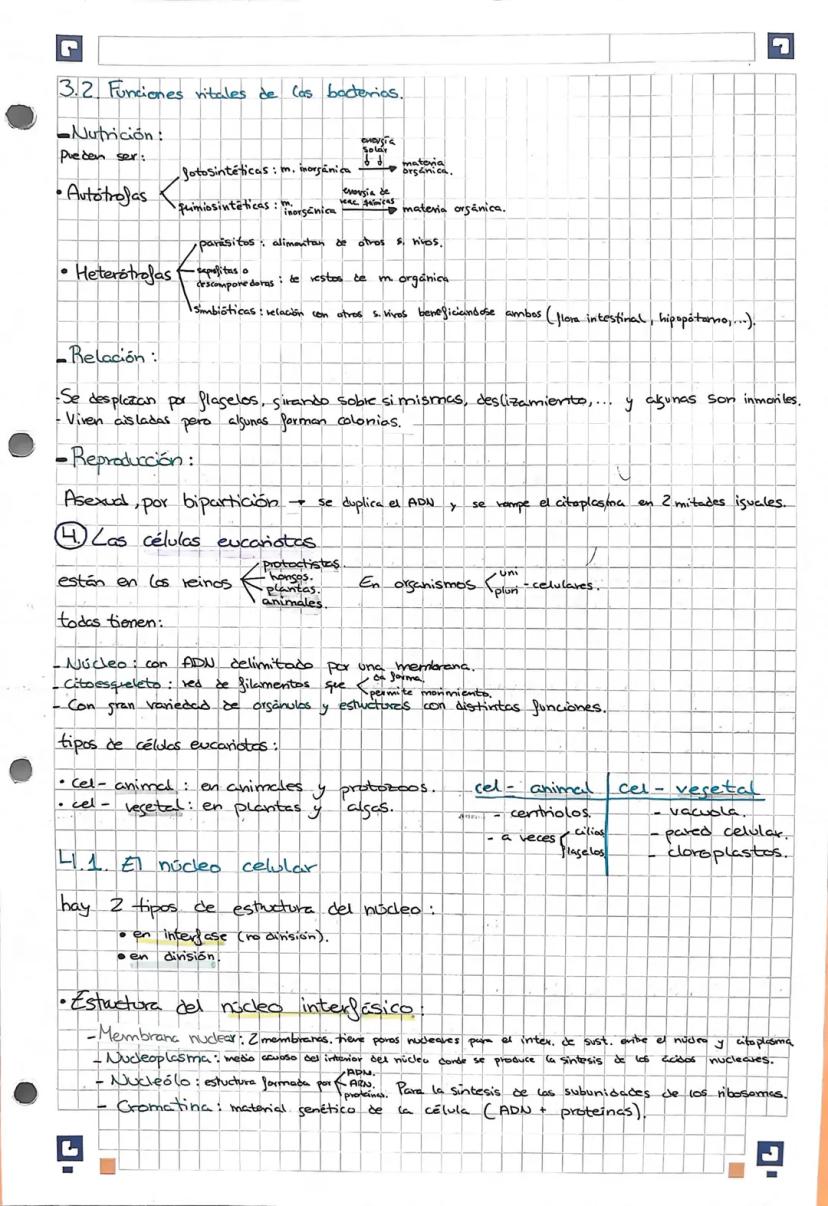 3.2. Funciones vitales de las bacterias.
- Nutrición:
Pueden ser:
• Autótrofas
fotosintéticas: m. inorgánica energía solar → materia orgánica.
quimiosintéticas: m. inorgánica energía de reac. químicas → materia orgánica.
• Heterótrofas
parásitos: alimentan de otros s. vivos.
sapofitas o descomponedoras: de restos de m orgánica
Simbióticas: relación con otros s. vivos beneficiandose ambos (flora intestinal, hipopótamo,...).
- Relación:
- Se desplazan por flagelos, girando sobre si mismas, deslizamiento,... y algunas son inmoviles.
- Viven aisladas pero algunas forman colonias.
- Reproducción:
Asexual, por bipartición → se duplica el ADN y se rompe el citoplasma en 2 mitades iguales.
4. Las células eucariotas
están en los reinos protoctistas. hongos. plantas. animales. En organismos uni pluri -celulares.
todas tienen:
- Núcleo: con ADN delimitado por una membrana.
- Citoesqueleto: red de filamentos que da forma. permite movimiento.
- Con gran variedad de orgánulos y estructuras con distintas funciones.
tipos de células eucariotas:
• cel- animal: en animales y protozoos.
• cel- vegetal: en plantas y algas.
cel- animal | cel- vegetal
- centriolos. | - vacuola.
- a veces cilios flagelos | - pared celular.
- cloroplastos.
4.1. El núcleo celular
hay 2 tipos de estructura del núcleo:
• en interfase (no división).
• en división.
• Estructura del núcleo interfásico:
- Membrana nuclear: 2 membranas. tiene poros nucleares para el inter. de sust. entre el núcleo y citoplasma
- Nucleoplasma: medio acuoso del interior del núcleo donde se produce la síntesis de los ácidos nucleares.
- Nucleólo: estructura formada por ADN. ARN. proteínas. Para la síntesis de las subunidades de los ribosomas.
- Cromatina: material genético de la célula (ADN + proteínas).